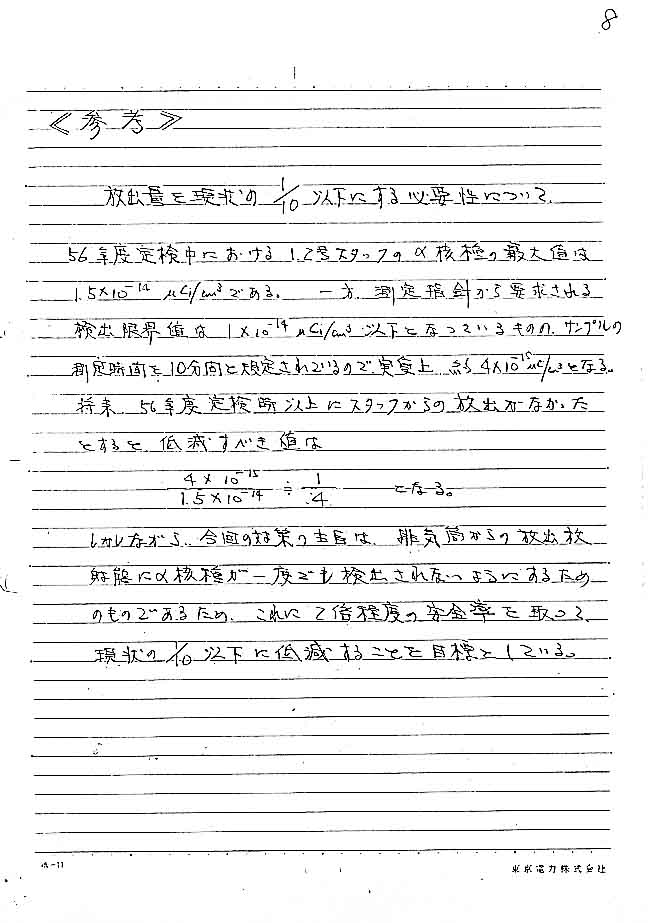 8
《参考》
放出量を現状の 1/10 以下にする必要性について
56年度定検中における 1.2号スタックのα核種の最大値は
1.5×10⁻¹⁴ μCi/cm³である。 一方、測定指針から要求される
検出限界値は 1×10⁻¹⁴ μCi/cm³ 以下となっているものの、サンプルの
測定時間を10分間と規定されているので、実質上、約 4×10⁻¹⁵ μCi/cm³となる。
将来、56年度定検時以上にスタックからの放出がなかった
とすると 低減すべき値は
4×10⁻¹⁵/1.5×10⁻¹⁴ ≑ 1/4 となる。
しかしながら、今回の対策の主旨は、排気筒からの放出放
射能にα核種が一度でも検出されないようにするため
のものであるため、これに2倍程度の安全率を取って、
現状の 1/10 以下に低減することを目標としている。
東京電力株式会社